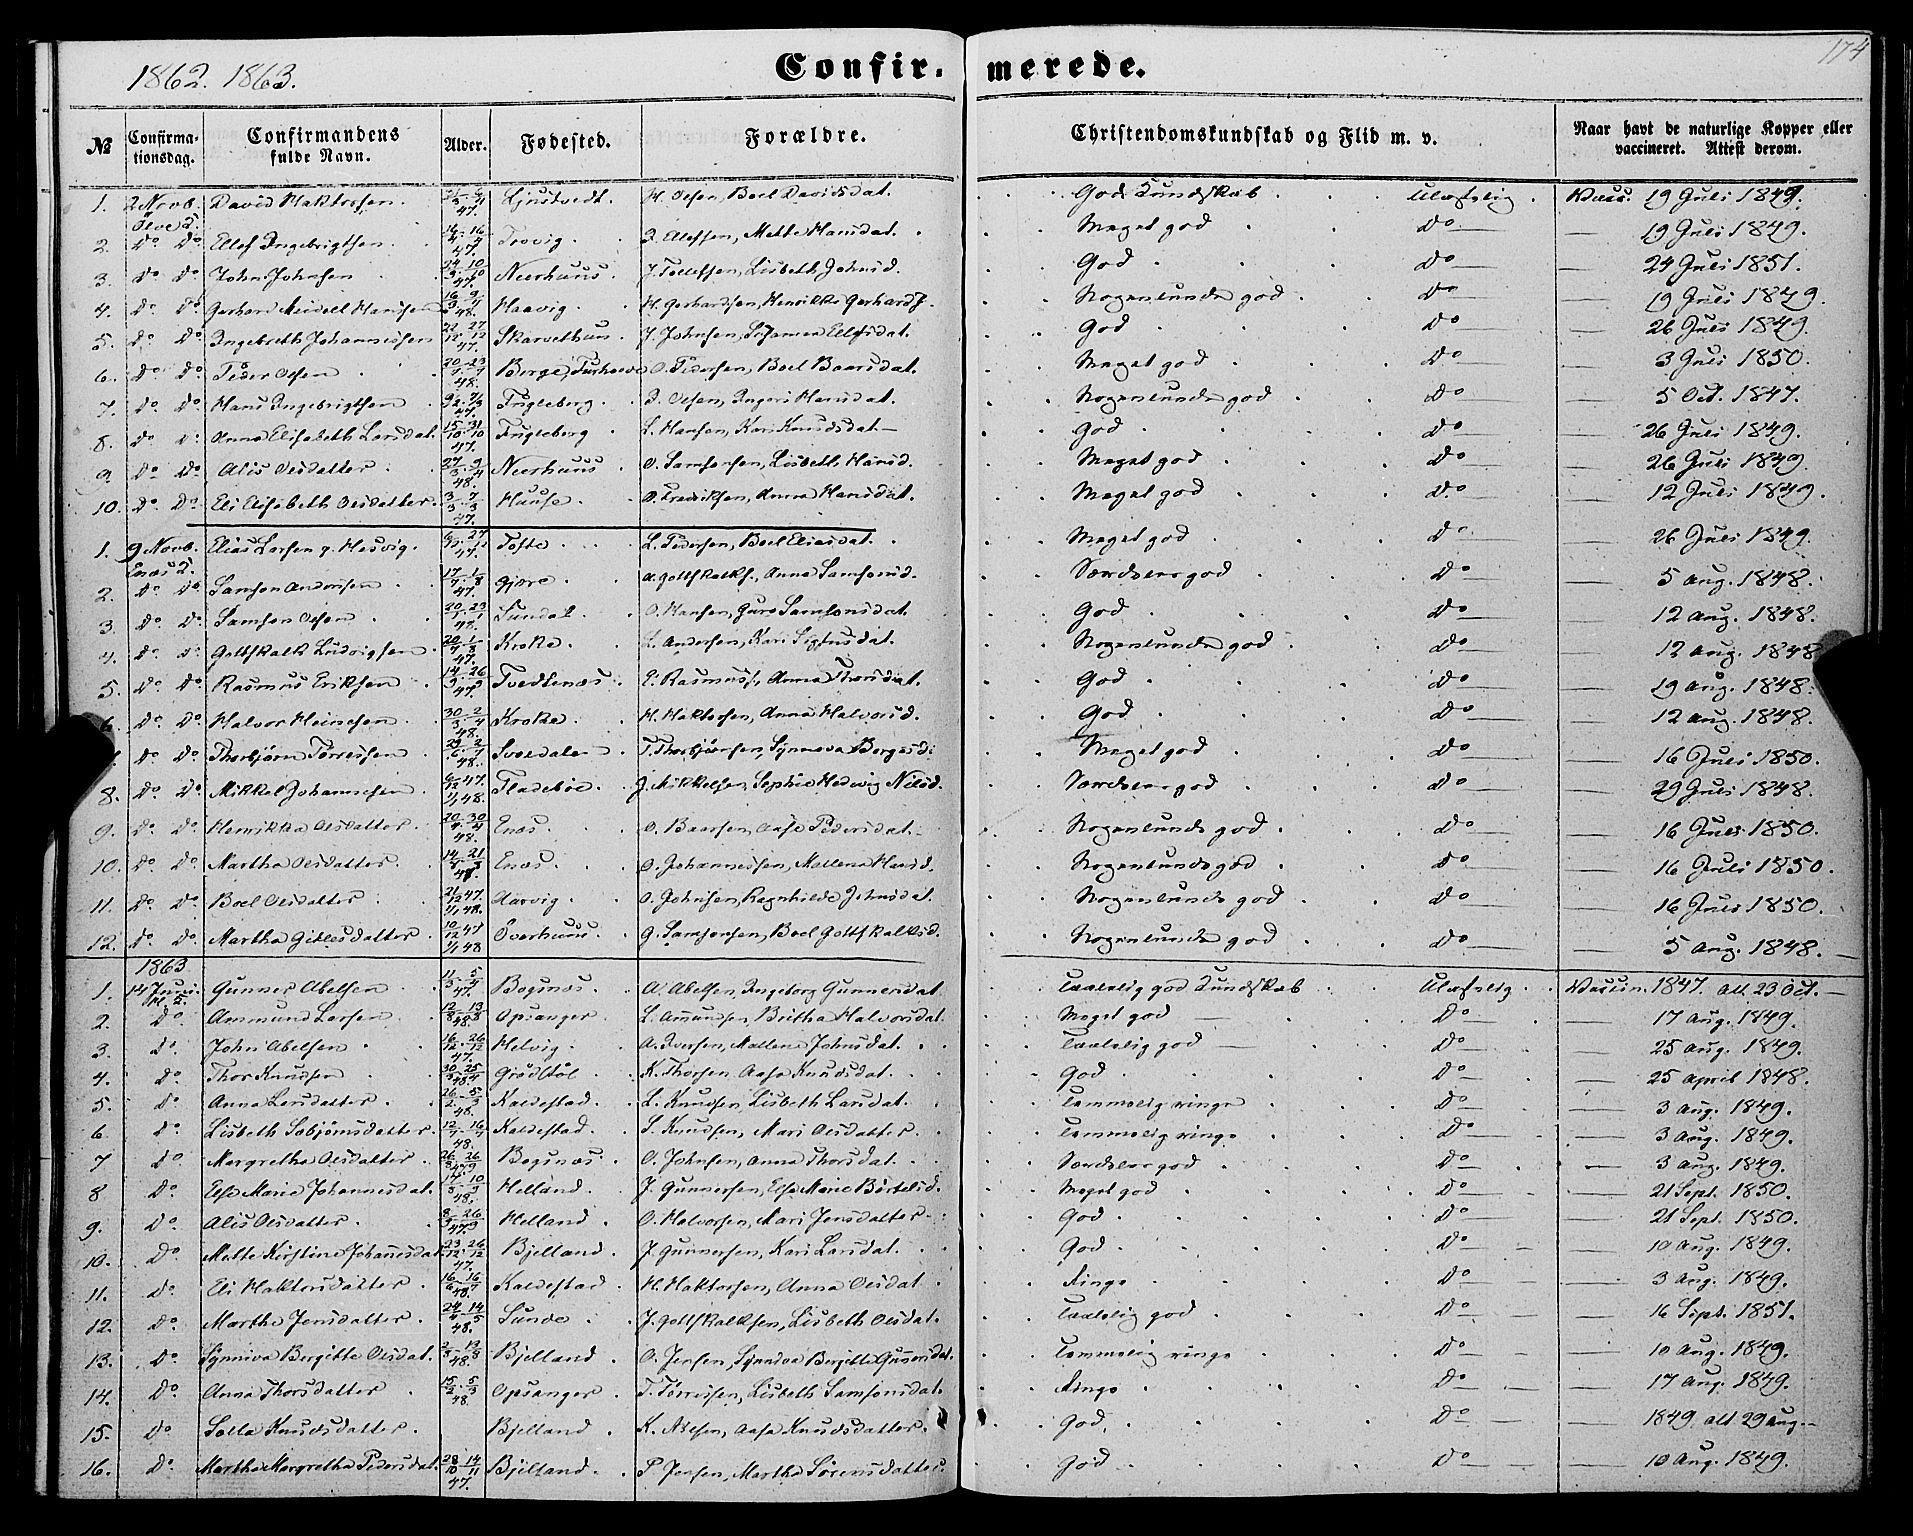 174
1862. 1863.
Confirmerede.
№ Confirmationsdag. Confirmandens fulde Navn. Alder. Fødested. Forældre. Christendomskundskab og Flid m. v. Naar havt de naturlige Kopper eller vaccineret. Attest derom.
1. 2 Novb. David Haktorsen. 47. Ljustvedt. H. Olsen, Boel Davidsdat. God Kundskab Ulastelig. Vacc. 19 Juli 1849.
2. Do Do Ellef Ingebrigtsen 47 Trovig. I. Ellefsen, Mette Hansdat. Meget god Do — 19 Juli 1849.
3. Do Do John Johnsen 47. Neerhuus J. Tollefsen, Lisbeth Johnsd. God Do — 24 Juli 1851.
4. Do Do Gerhard Meidell Hansen 48. Haavig. H. Gerhardsen, Henrikke Gerhardsd. Nogenlunde god Do — 19 Juli 1849.
5. Do Do Ingebreth Johannessen 22/12 27/12 47. Skarvethun. J. Johnsen, Ellefsdat. God Do — 26 Juli 1849.
6. Do Do Peder Olsen 48. Berge, O. Pedersen, Boel Baarsdat. Meget god Do — 3 Juli 1850.
7. Do Do Hans Ingebrigtsen 47. Fugleberg. I. Olsen, Ingeri Hansdat. Nogenlunde god Do — 5 Oct. 1847.
8. Do Do Anna Elisabeth Larsdat. 15/10 31/10 47. Fugleberg L. Hansen, Kari Knudsdat. God Do — 26 Juli 1849.
9. Do Do Alis Olsdatter. 27/3 9/4 48. Neerhuus O. Samsonsen, Lisbeth Hansd. Meget god Do — 26 Juli 1849.
10. Do Do Eli Elisabeth Olsdatter. 3/3 7/3 47. Huuse. O. Fredriksen, Anna Hansdat. Meget god Do — 12 Juli 1849.
1. 9 Novb. Elias Larsen g. Hesvig. 47 Tofte. L. Pedersen, Boel Eliasdat. Meget god Do — 26 Juli 1849.
Enæs K.
2. Do Do Samson Andersen 17/7 1/8 47. Gjære. A. Gottskalks., Anna Samsonsd. Særdeles god Do — 5 Aug. 1848.
3. Do Do Samson Olsen 48. Sundal O. Hansen, Guro Samsonsdat. God Do — 12 Aug. 1848.
4. Do Do Gottskalk Ludvigsen 47. Kroka. L. Andersen, Kari Nogenlunde god Do — 12 Aug. 1848
5. Do Do Rasmus Eriksen 47. Tvedtenæs. E. Rasmuss., Anna Thorsdat. God Do — 19 Aug. 1848.
6. Do Do Halvor Heinesen 30/3 2/4 48. Kroka. H. Haktorsen, Anna Halvorsd. God Do — 12 Aug. 1848.
Do Do Thorbjørn Tørressen 48. Svaedalen T. Thorbjørnsen, Synneva Borgesd. Meget god Do — 16 Juli 1850.
8. Do Do Mikkel Johannesen Fladebøe. J. Mikkelsen, Sophie Hedvig Nilsd. Særdeles god Do — 29 Juli 1848.
9. Do Do Henrikka Olsdatter. 20/4 30/4 48. Enæs. O. Baarsen, Aase Pedersdat. Nogenlunde god Do — 16 Juli 1850.
10. Do Do Martha Olsdatter 48. Enæs. O. Johannessen, Mallena Hansd. Nogenlunde god Do — 16 Juli 1850.
11. Do Do Boel Olsdatter 21/12 47. Aarvig. O. Johnsen, Ragnhilde Johnsdat. Nogenlunde god Do — 16 Juli 1850.
12. Do Do Martha Gitlesdatter 10/12 47 Overhuus. G. Samsonsen, Boel Gottskalksd. Nogenlunde god Do — 5 Aug. 1848.
1863
1. 14 Juni. Gunner Abelsen 47. Bogsnæs. A. Abelsen, Ingeborg Gunnersdat Taalelig god Kundskab Ulastelig. Vaccin. 1847. att. 23 Oct.
2. Do Ammund Larsen 48. Opsanger. L. Amundsen, Britha Halvorsdat. Meget god Do — 17 Aug. 1849.
3. Do John Abelsen 16/12 26/12 47. Helvig. A. Iversen, Mallena Johnsdat. Taalelig god Do — 25 Aug. 1849.
4. Do Thor Knudsen 48 Grødstøl K. Thorsen, Aasa Knudsdat. God Do — 25 April 1848.
5. Do Anna Larsdatter 26/2 5/3 48. Kaldestad. L. Knudsen, Lisbeth Larsdat. Temmelig ringe Do — 3 Aug. 1849.
6. Do Lisbeth Sobjørnsdatter 48. Kaldestad. S. Knudsen, Mari Olsdatter. Temmelig ringe Do — 3 Aug. 1849.
7 Do Margretha Olsdatter Bogsnæs. O. Johnsen, Anna Thorsdat. Særdeles god Do — 3 Aug. 1849.
8 Do Else Maria Johannesdat. 48. Helland. J. Gunnersen, Else Marie Bårtelsd. Meget god Do — 21 Sept. 1850.
9. Do Alis Olsdatter 47 Helland. O. Halvorsen, Mari Jensdatter God Do — 21 Sept. 1850.
10. Do Mette Kirstine Johannesdat. 23/12 26/12 47. Bjelland. J. Gunnersen, Kari Larsdat. God Do — 10 Aug. 1849.
11. Do Eli Haktorsdatter 48. Kaldestad. H. Haktorsen, Anna Olsdat. Ringe Do — 3 Aug. 1849.
12. Do Martha Jensdatter 24/4 14/5 48. Sunde J. Gottskalksen, Lisbeth Olsdat. Taalelig god Do — 16 Sept. 1851.
13. Do Synniva Bergitte Olsdat. 48. Bjelland. O. Jensen, Synneva Berjitte Gunnersdat. Temmelig ringe Do — 10 Aug. 1849.
14. Do Anna Thorsdatter 15/2 5/3 48. Opsanger T. Tørressen, Lisbeth Samsonsdat. Ringe Do — 17 Aug. 1849.
15. Do Knudsdatter Bjelland K. Nilsen, Aasa Knudsdatter. God Do — 1849. att. 29 Aug.
16. Do Martha Margretha Pedersdat. 28/10 14/11 47. Bjelland. P. Jensen, Martha Sørensdatter. God Do — 10 Aug. 1849.